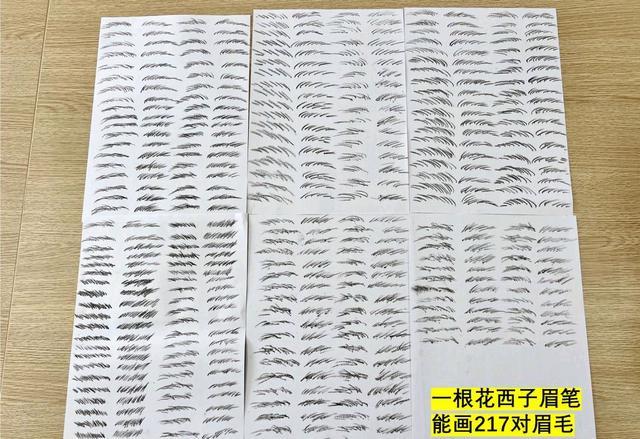 一根花西子眉笔
能画217对眉毛